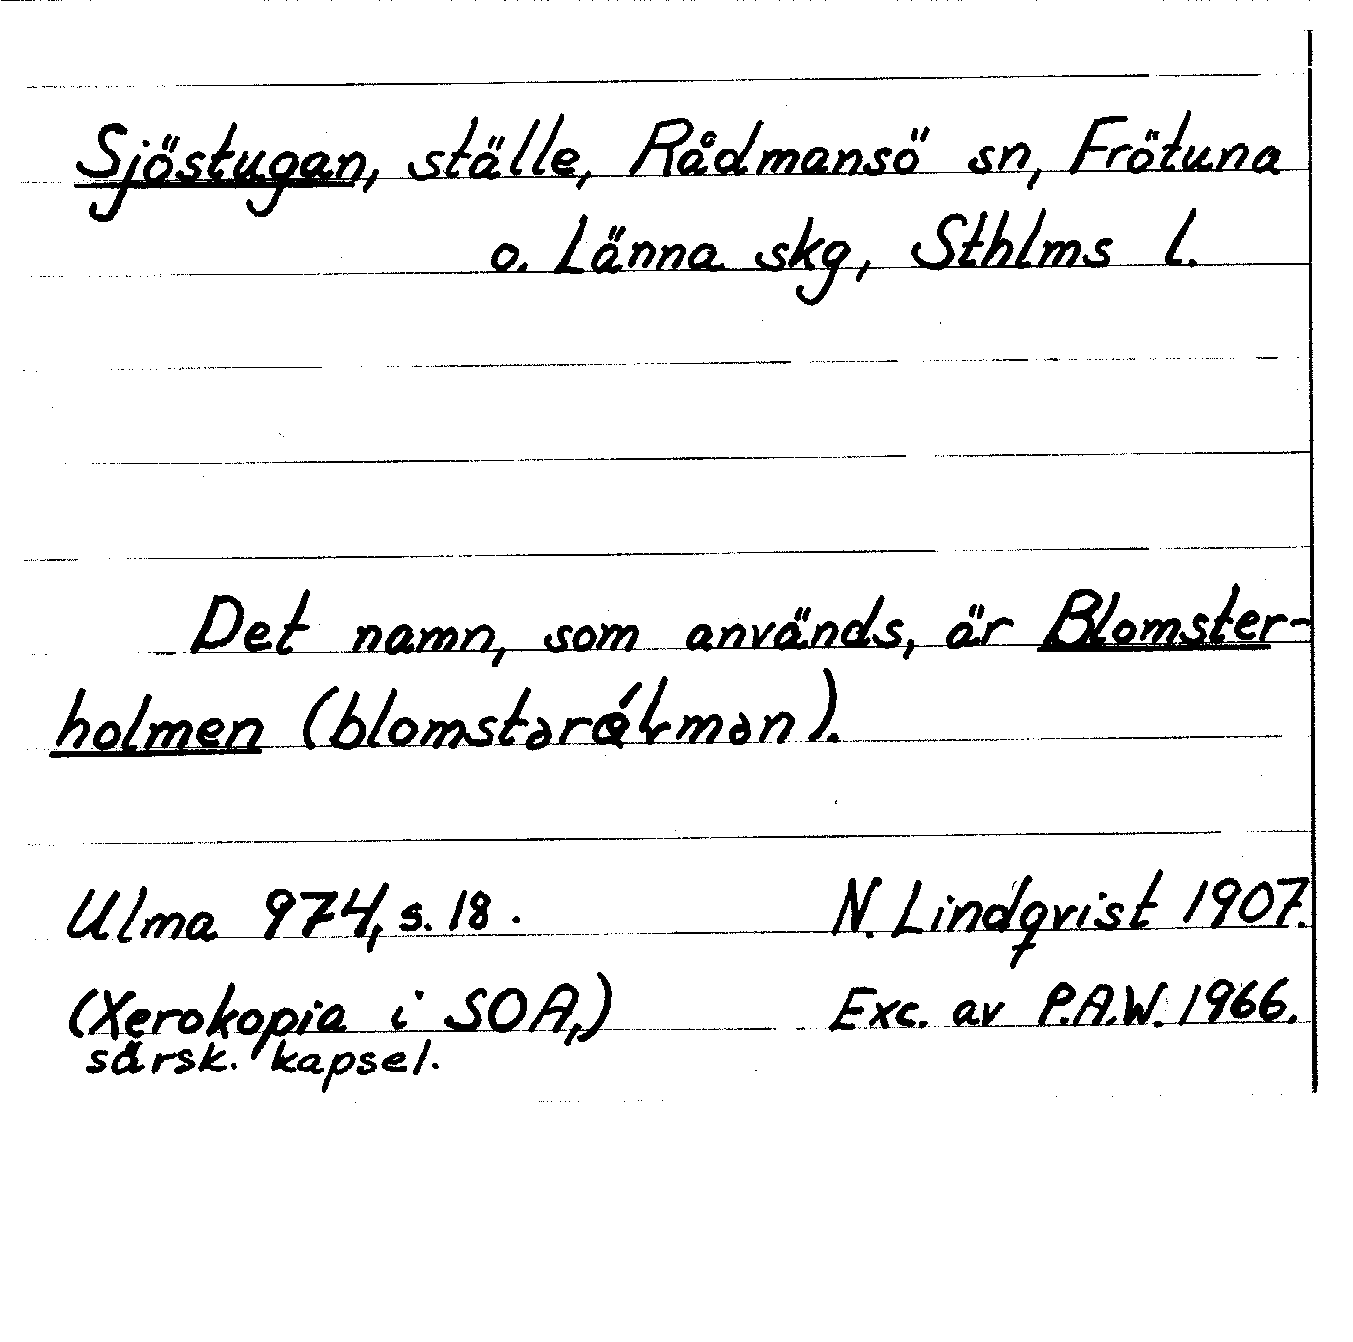 Sjöstugan, ställe, Rådmansö sn, Frötuna
o. Länna skg, Sthlms l.
Det namn, som används, är Blomster-
holmen (
Ulma 974, s. 18.
N. Lindqvist 1907.
(Xerokopia i SOA,)
särsk. kapsel.
Exc. av P.A.W. 1966.